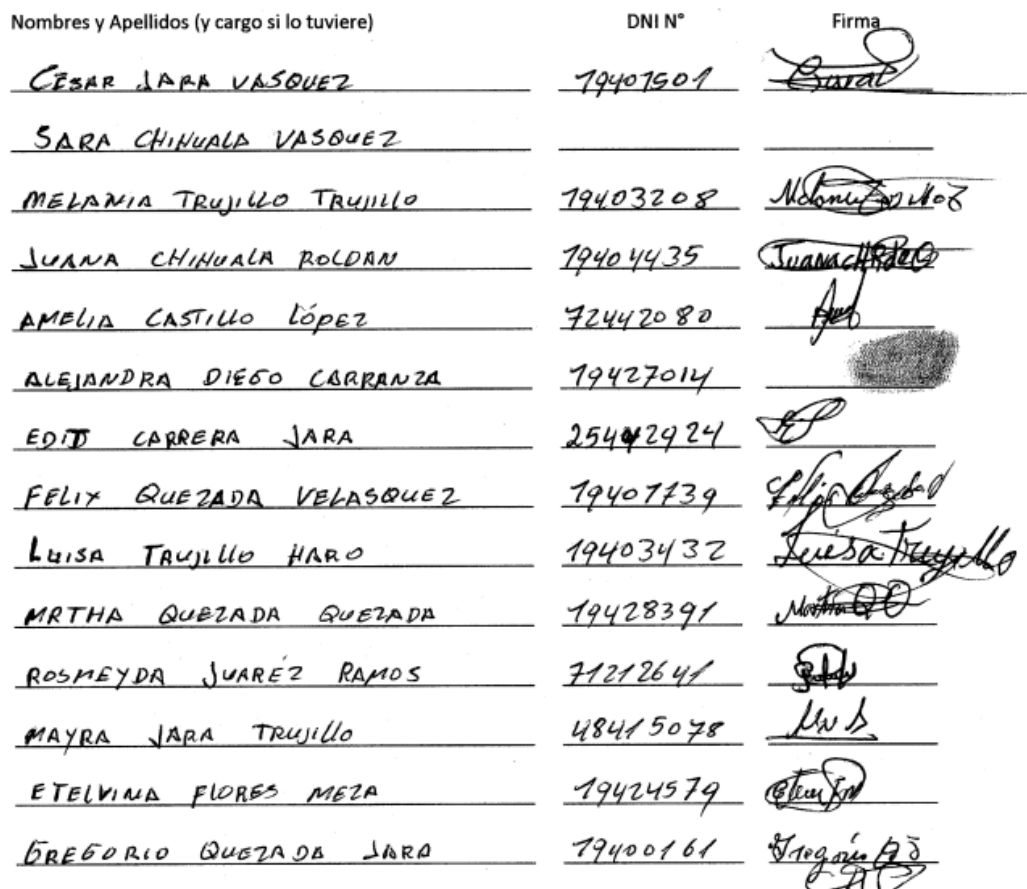 Nombres y Apellidos (y cargo si lo tuviere) DNI N° Firma
CÉSAR JARA VASQUEZ 19401501
SARA CHIHUALA VASQUEZ
MELANIA TRUJILLO TRUJILLO 19403208
JUANA CHIHUALA ROLDAN 19404435
AMELIA CASTILLO LÓPEZ 72442080
ALEJANDRA DIEGO CARRANZA 19427014
EDIT CARRERA JARA 25442924
FELIX QUEZADA VELASQUEZ 19401739
LUISA TRUJILLO HARO 19403432 Luisa Trujillo
MRTHA QUEZADA QUEZADA 19428391
ROSMEYDA JUARÉZ RAMOS 71212641
MAYRA JARA TRUJILLO 48415078
ETELVINA FLORES MEZA 19424579
GREGORIO QUEZADA JARA 19400161